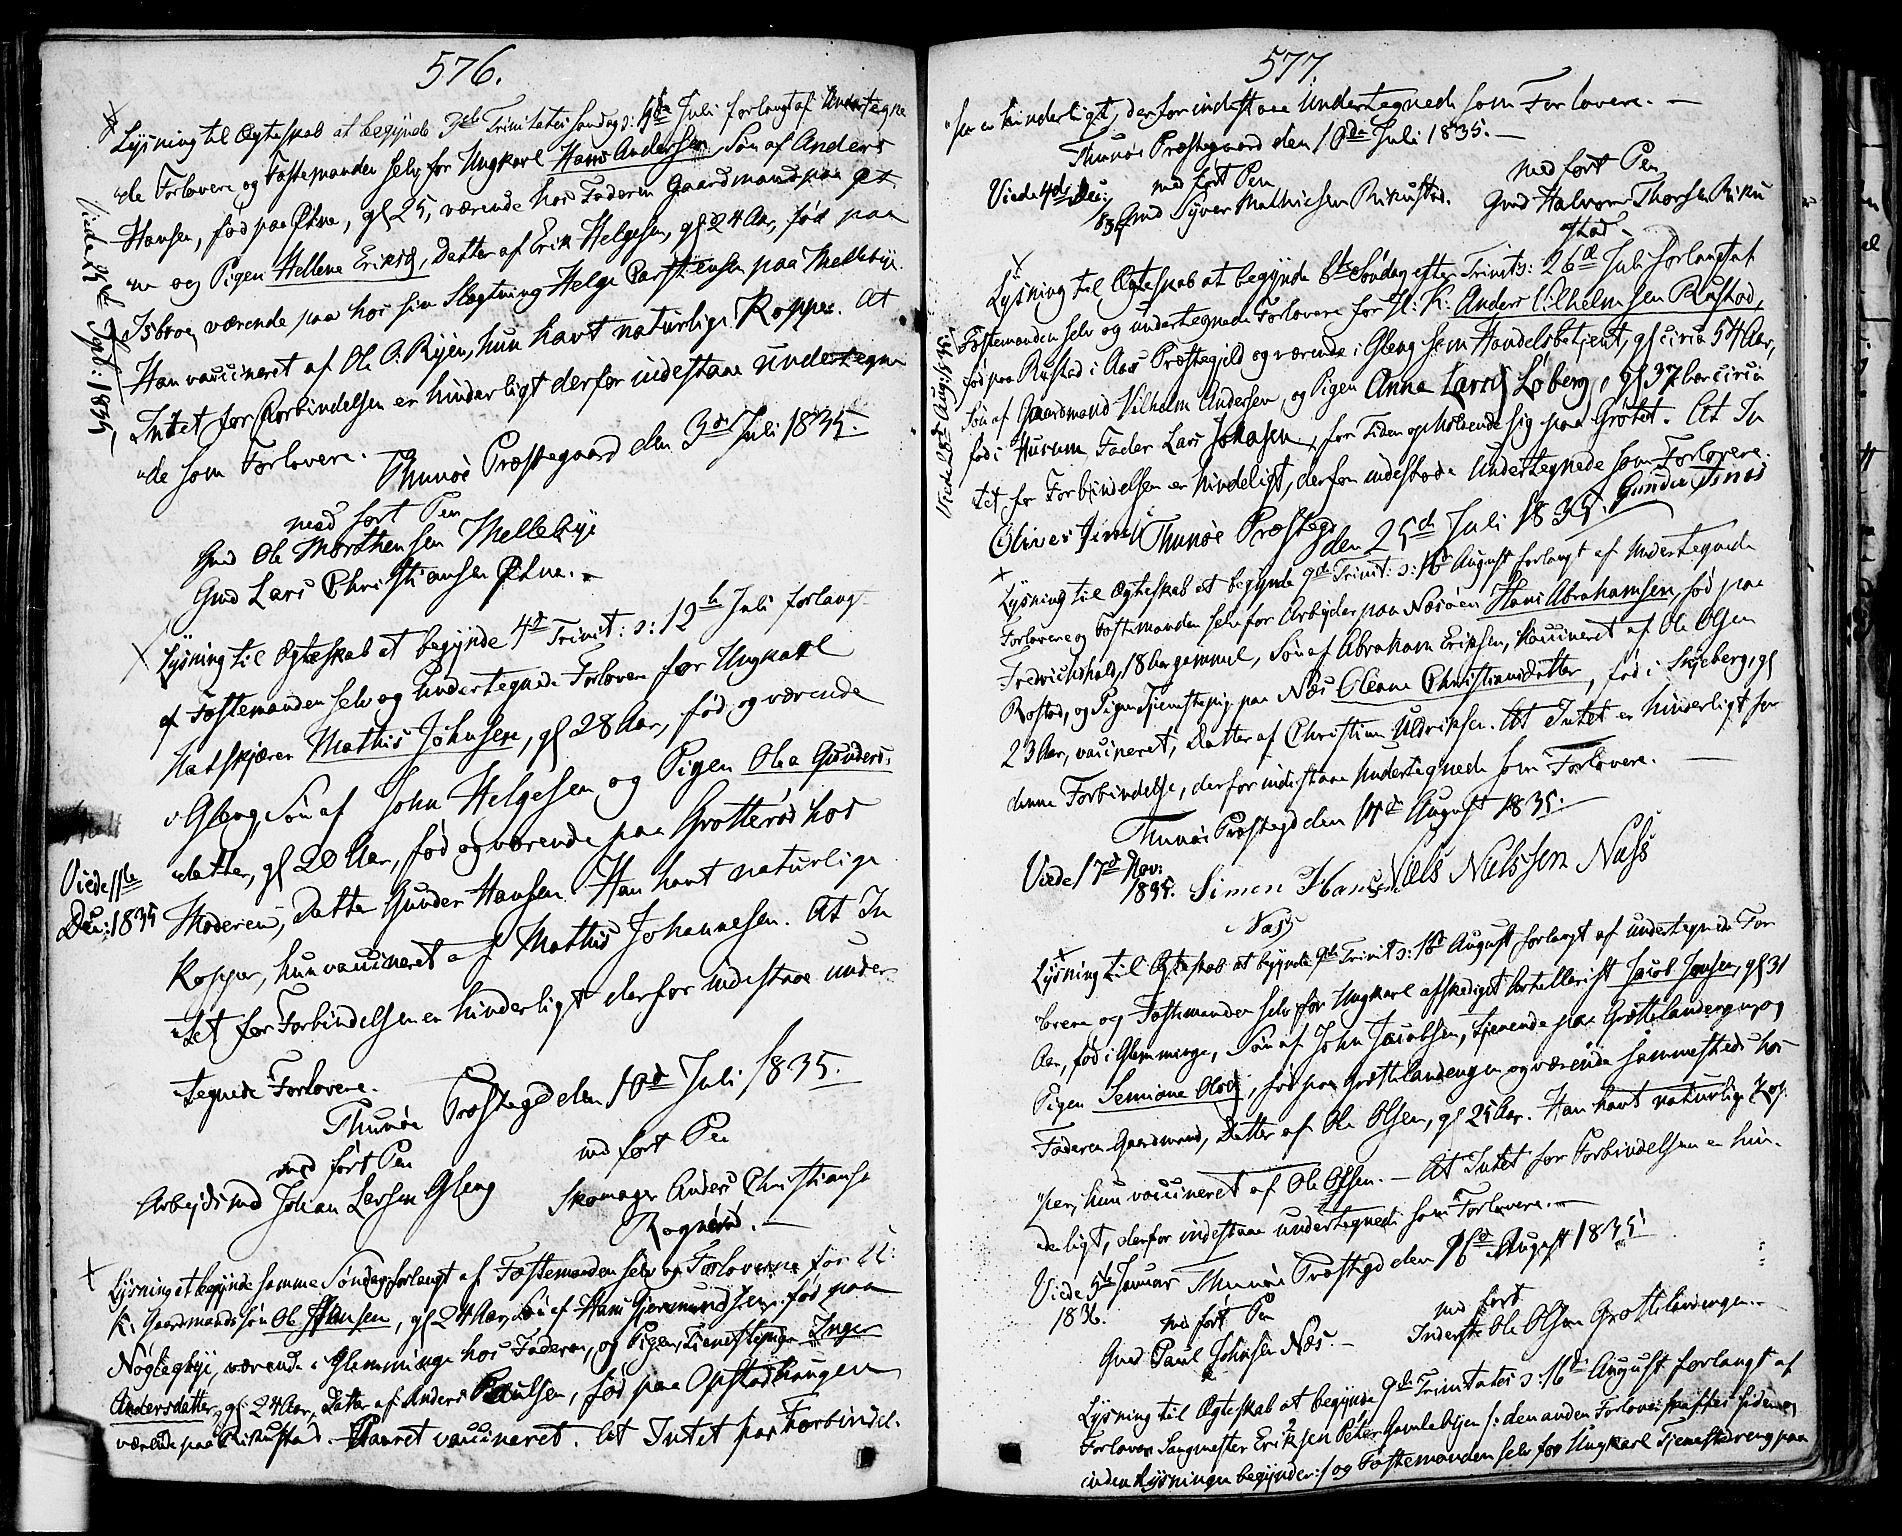 576.
Lysning til Ægteskab at begynde 3de Trinitatis Søndag : Juli forlangt af Undertegne
"de Forlovere og Fæstemanden selv for Ungkarl Hans Andersen, Søn af Anders
Hansen, fød paa Østne, gl 25, værende hos Faderen Gaardmand paa Øt
ne og Pigen Hellene Ericsd, Datter af Erik Helgesen, gl 24 Aar, fød paa
Isbroe, værende paa hos sin Slægtning Helge Carstensen paa Mellebye.
Han vaccineret af Ole O. Ryen, hun havt naturlige Kopper. At
Intet for Forbindelsen er hinderligt derfor indestaae undertegne
"de som Forlovere.
Thunøe Præstegaard den 3de Juli 1835.
Viede 25de Sept: 1835
med ført Pen
Gmd Ole Morthensen Mellebye
Gmd Lars Christiansen Østne.
Lysning til Ægteskab at begynde 4de Trinit: o: 12te Juli forlangt
af Fæstemanden selv og Undertegnede Forlovere for Ungkarl
Matskjærer Mathis Johnsen, gl 28 Aar, fød og værende
i Gleng, Søn af John Helgesen og Pigen Olea Gunders-
"datter, gl 20 Aar, fød og værende paa Grotterød hos
Moderen, Datter Gunder Hansen. Han havt naturlige
Kopper, hun vaccineret af Mathis Johannesen. At In
"tet for Forbindelsen er hinderligt derfor indestaae under-
tegnede Forlovere.
Viede 11te
Dec: 1835
Thunøe Præstegd den 10de Juli 1835.
med ført Pen
Arbejdsmd Johan Larsen Gleng
med ført Pen
Skomager Anders Christianse
Rognerød.
Lysning at begynde samme Søndag forlangt af Fæstemanden selv og Forloverne for U:
K: Gaardmandssøn Ole Hansen, gl 24 Aar, Søn af Hans Gjermundsen fød paa
Nøglegbye, værende i Glemminge hos Faderen, og Pigen, Tjenestepige Inger
Andersdatter, gl: 24 Aar, Datter af Anders Paulsen, fød paa Opstadhaugen
værende paa Rikustad. Parret vaccineret. At Intet for Forbindel-
577.
"sen er hinderligt, derfor indestaae Undertegnede som Forlovere.
Thunøe Præstegaard den 10de Juli 1835.
Viede 4de Dec:
1835
med ført Pen
Gmd Syver Mathiesen Rikustad.
med ført Pen
Gmd Halvor Thorsen Riku
stad
Lysning til Ægteskab at begynde 6te Søndag efter Trinit: o: 26de Juli forlangt af
Fæstemanden selv og undertegnede Forlovere for U: K: Anders Vilhelmsen Rustad,
fød paa Rustad i Aas Præstegjeld og værende i Gleng som Handelsbetjent, gl circa 54 Aar,
Søn af Gaardmand Vilhelm Andersen, og Pigen Anne Larsd Løberg, gl 37 Aar circa
fød i Hurum Fader Lars Johnsen, for Tiden opholdende sig paa Grøtet. At In
tet for Forbindelsen er hinderligt, derfor indestaae Undertegnede som Forlovere.
Viede 28de Aug: 1835.
Thunøe Præstegd den 25de Juli 1835.
Lysning til Ægteskab at begynde 9de Trinit: o: 16de August forlangt af Undertegnede
Forlovere og Fæstemanden selv for Arbejder paa Næsøen Hans Abrahamsen, fød paa
Fredrichshald, 18 Aar gammel, Søn af Abraham Eriksen, vaccineret af Ole Olsen
Rostad, og Pigen Tjenestepig. paa Næs Oleane Christiansdatter, fød i Skjeberg, gl
23 Aar, vaccineret, Datter af Christian Uldriksen. At Intet er hinderligt for
denne Forbindelse, derfor indestaae Undertegnede som Forlovere.
Thunøe Præstegd den 14de August 1835.
Viede 17de Nov:
1835.
Simen Hansen Næss
Niels Nielssen Næss
Lysning til Ægteskab at begynde 9de Trinit o: 16de August forlangt af undertegnede For
"lovere og Fæstemanden selv for Ungkarl afskediget Artillerist Jacob Jonsen, gl 31
Aar, fød i Glemminge, Søn af John Jacobsen, tjenende paa Grøttelandengen, og
Pigen Semiane Olsd, fød paa Grøttelandengen og værende sammesteds hos
Faderen Gaardmand, Datter af Ole Olsen, gl 25 Aar. Han havt naturlige Kop-
"per, hun vaccineret af Ole Olsen. — At Intet for Forbindelsen er hin-
derligt, derfor indestaae undertegnede som Forlovere.
Thunøe Præstegd den 16de August 1835
Viede 5te Januar
1836.
med ført Pen
Gmd Paul Johnsen Næs.
med ført
Inderste Ole Olsen Grøttelandengen.
Lysning til Ægteskab at begynde 9de Trinitatis o: 16de August forlangt af
Forlover Saugmester Eriksen Peter Gamlebyen /: den anden Forlover skaffes siden og
inden Lysningen begynder :/ og Fæstemanden selv for Ungkarl Tjenestedreng paa